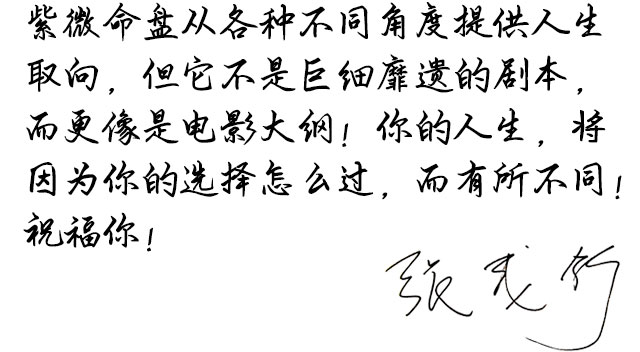 紫微命盘从各种不同角度提供人生
取向，但它不是巨细靡遗的剧本，
而更像是电影大纲！你的人生，将
因为你的选择怎么过，而有所不同！
祝福你！
张盛舒